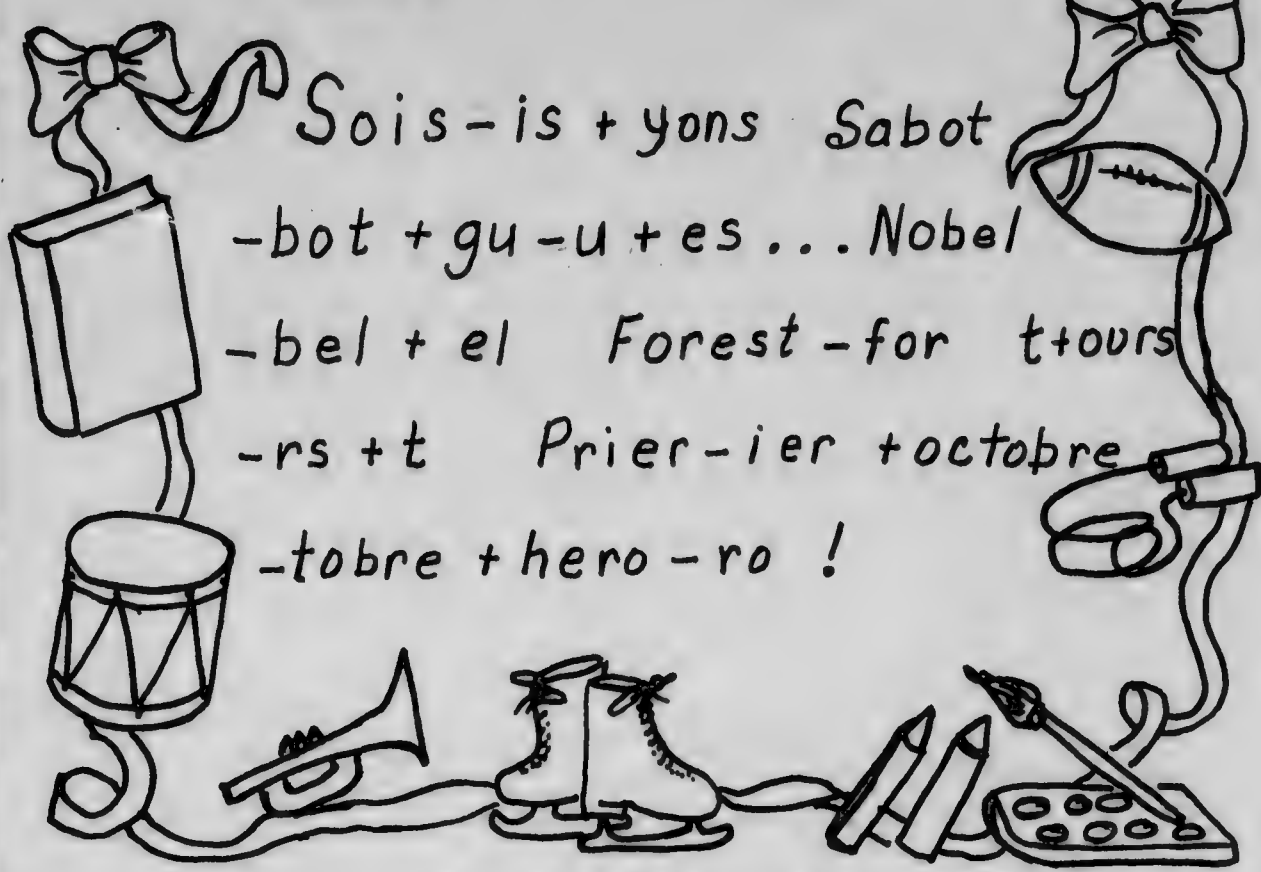 Sois - is + yons Sabot
-bot + gu - u + es ... Nobel
-bel + el Forest - for t+ours
-rs + t Prier - ier + octobre
-tobre + hero - ro !